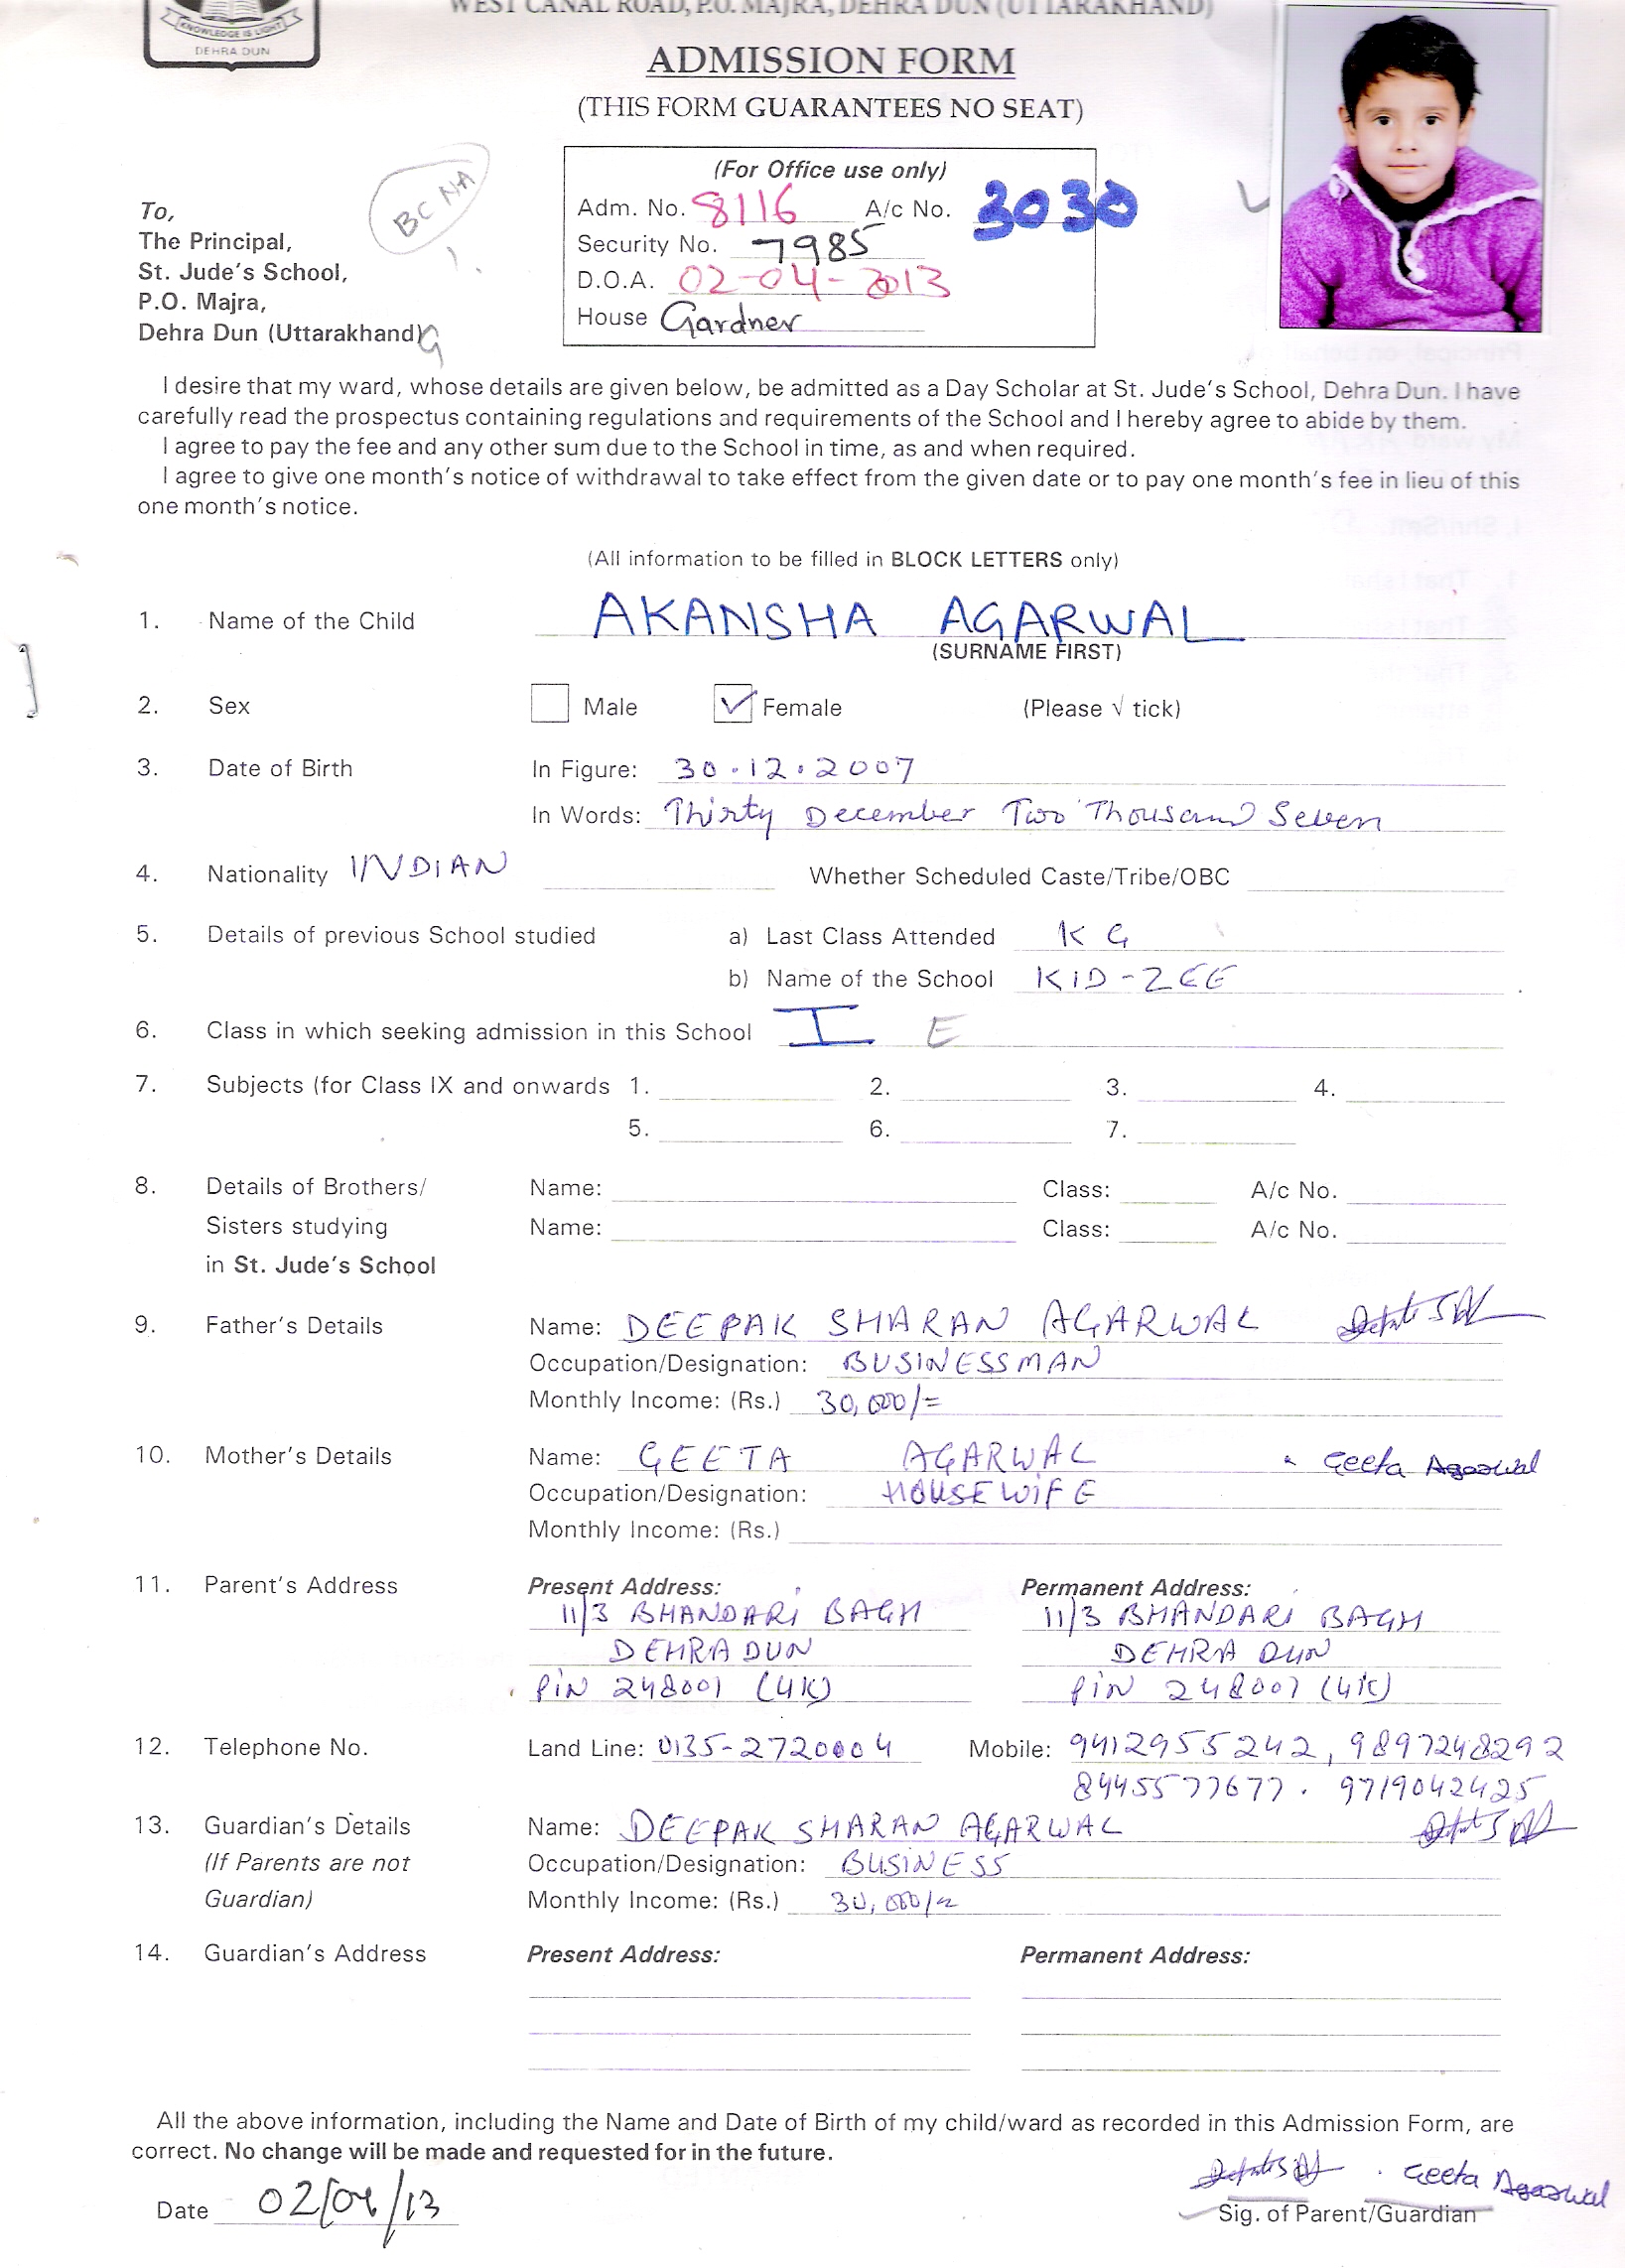 WEST CANAL ROAD, P.O. MAJRA, DEHRA DUN (UTTARAKHAND)
KNOWLEDGE IS LIGHT
DEHRA DUN
ADMISSION FORM
(THIS FORM GUARANTEES NO SEAT)
BC NA
(For Office use only)
Adm. No. 8116 A/c No. 3030
Security No. 7985
D.O.A. 02-04-2013
House Gardner
To,
The Principal,
St. Jude's School,
P.O. Majra,
Dehra Dun (Uttarakhand)
I desire that my ward, whose details are given below, be admitted as a Day Scholar at St. Jude's School, Dehra Dun. I have
carefully read the prospectus containing regulations and requirements of the School and I hereby agree to abide by them.
I agree to pay the fee and any other sum due to the School in time, as and when required.
I agree to give one month's notice of withdrawal to take effect from the given date or to pay one month's fee in lieu of this
one month's notice.
(All information to be filled in BLOCK LETTERS only)
1. Name of the Child AKANSHA AGARWAL
(SURNAME FIRST)
2. Sex Male Female (Please √ tick)
3. Date of Birth In Figure: 30.12.2007
In Words: Thirty December Two Thousand Seven
4. Nationality INDIAN Whether Scheduled Caste/Tribe/OBC
5. Details of previous School studied a) Last Class Attended KG
b) Name of the School KID-ZEE
6. Class in which seeking admission in this School I E
7. Subjects (for Class IX and onwards 1. 2. 3. 4.
5. 6. 7.
8. Details of Brothers/ Name: Class: A/c No.
Sisters studying Name: Class: A/c No.
in St. Jude's School
9. Father's Details Name: DEEPAK SHARAN AGARWAL
Occupation/Designation: BUSINESSMAN
Monthly Income: (Rs.) 30,000/=
10. Mother's Details Name: GEETA AGARWAL Geeta Agarwal
Occupation/Designation: HOUSEWIFE
Monthly Income: (Rs.)
11. Parent's Address Present Address: Permanent Address:
11/3 BHANDARI BAGH 11/3 BHANDARI BAGH
DEHRADUN DEHRA DUN
PIN 248001 (UK) PIN 248001 (UK)
12. Telephone No. Land Line: 0135-2720004 Mobile: 9412955242, 9897248292
8445577677. 9719042425
13. Guardian's Details Name: DEEPAK SHARAN AGARWAL
(If Parents are not Occupation/Designation: BUSINESS
Guardian) Monthly Income: (Rs.) 30,000/=
14. Guardian's Address Present Address: Permanent Address:
All the above information, including the Name and Date of Birth of my child/ward as recorded in this Admission Form, are
correct. No change will be made and requested for in the future.
Geeta Agarwal
Date 02/04/13 Sig. of Parent/Guardian